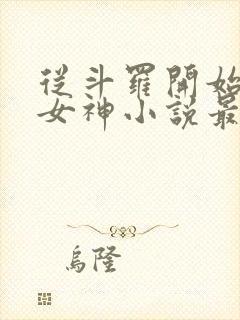 從斗羅開始
女神小說最
烏隆